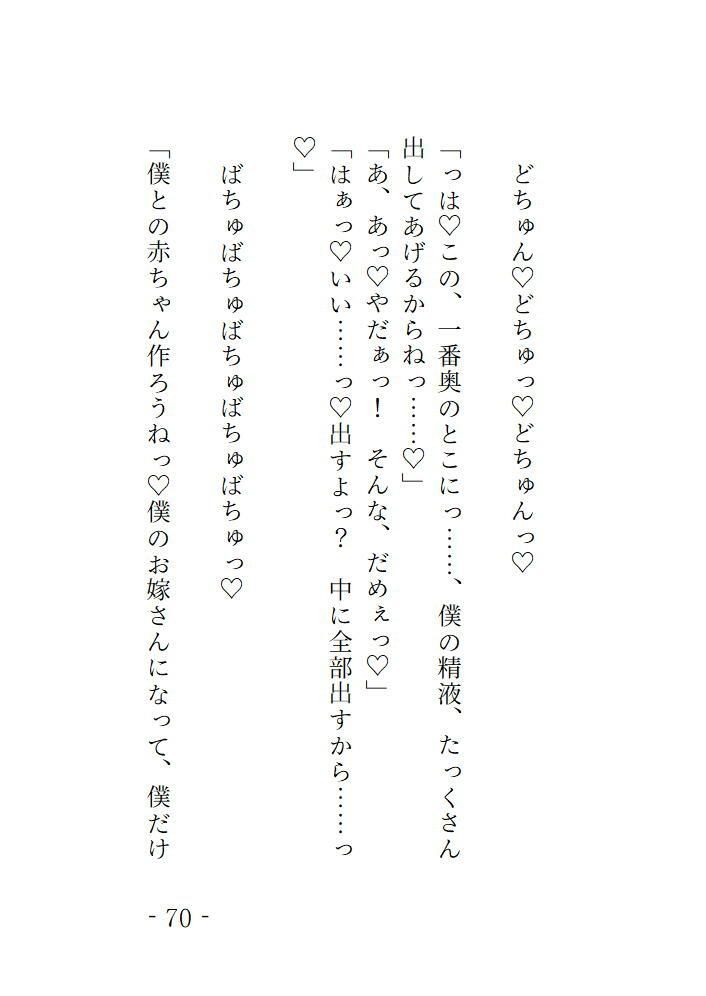 どちゅん♡どちゅっ♡どちゅんっ♡
「っは♡この、一番奥のとこにっ……、僕の精液、たっくさん
出してあげるからねっ……♡」
「あ、あっ♡やだぁっ！　そんな、だめぇっ♡」
「はぁっ♡いい……っ♡出すよっ？　中に全部出すから……っ
♡」
ばちゅばちゅばちゅばちゅばちゅっ♡
「僕との赤ちゃん作ろうねっ♡僕のお嫁さんになって、僕だけ
- 70 -